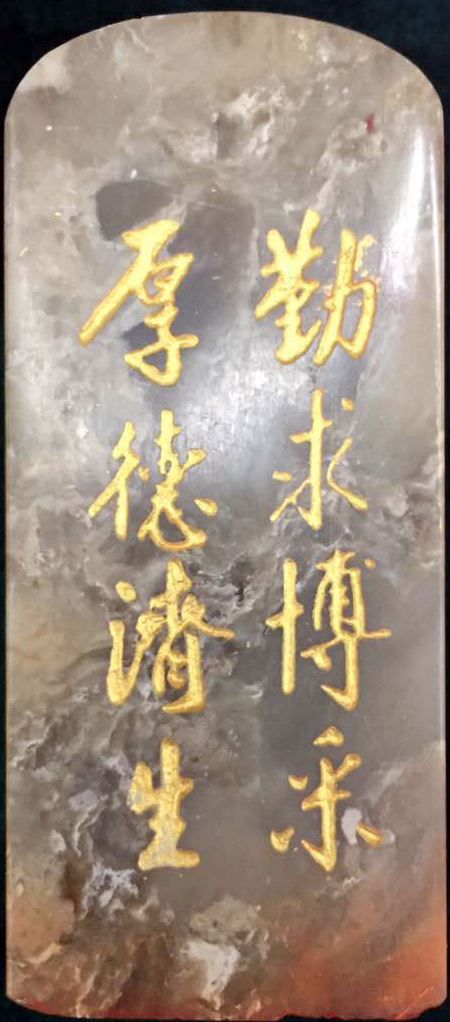 勤求博采
厚德濟生